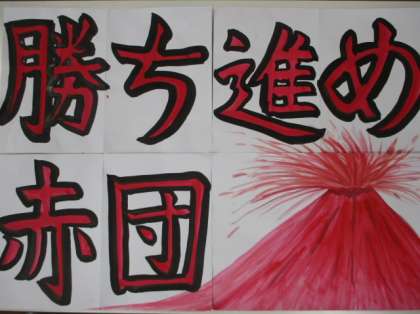 勝ち進め
赤団